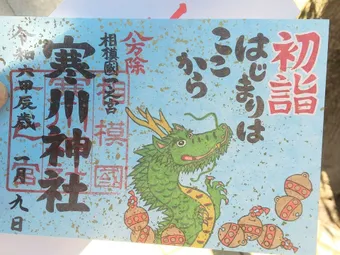 初詣
はじまりは
ここ
から
八方除
相模國一之宮
寒川神社
令和六甲辰歳 一月九日
相模國